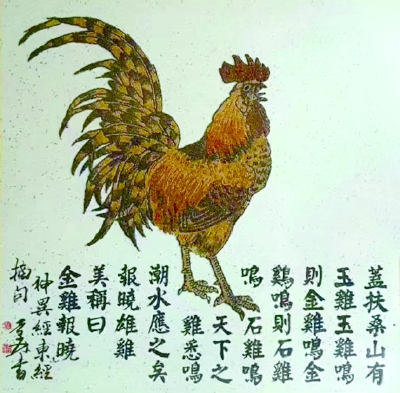 蓋扶桑山有
玉雞玉雞鳴
則金雞鳴金
鷄鳴則石雞
鳴石雞鳴
天下之
雞悉鳴
潮水應之矣
報曉雄雞
美稱曰
金雞報曉
神異經東經
摘句 書